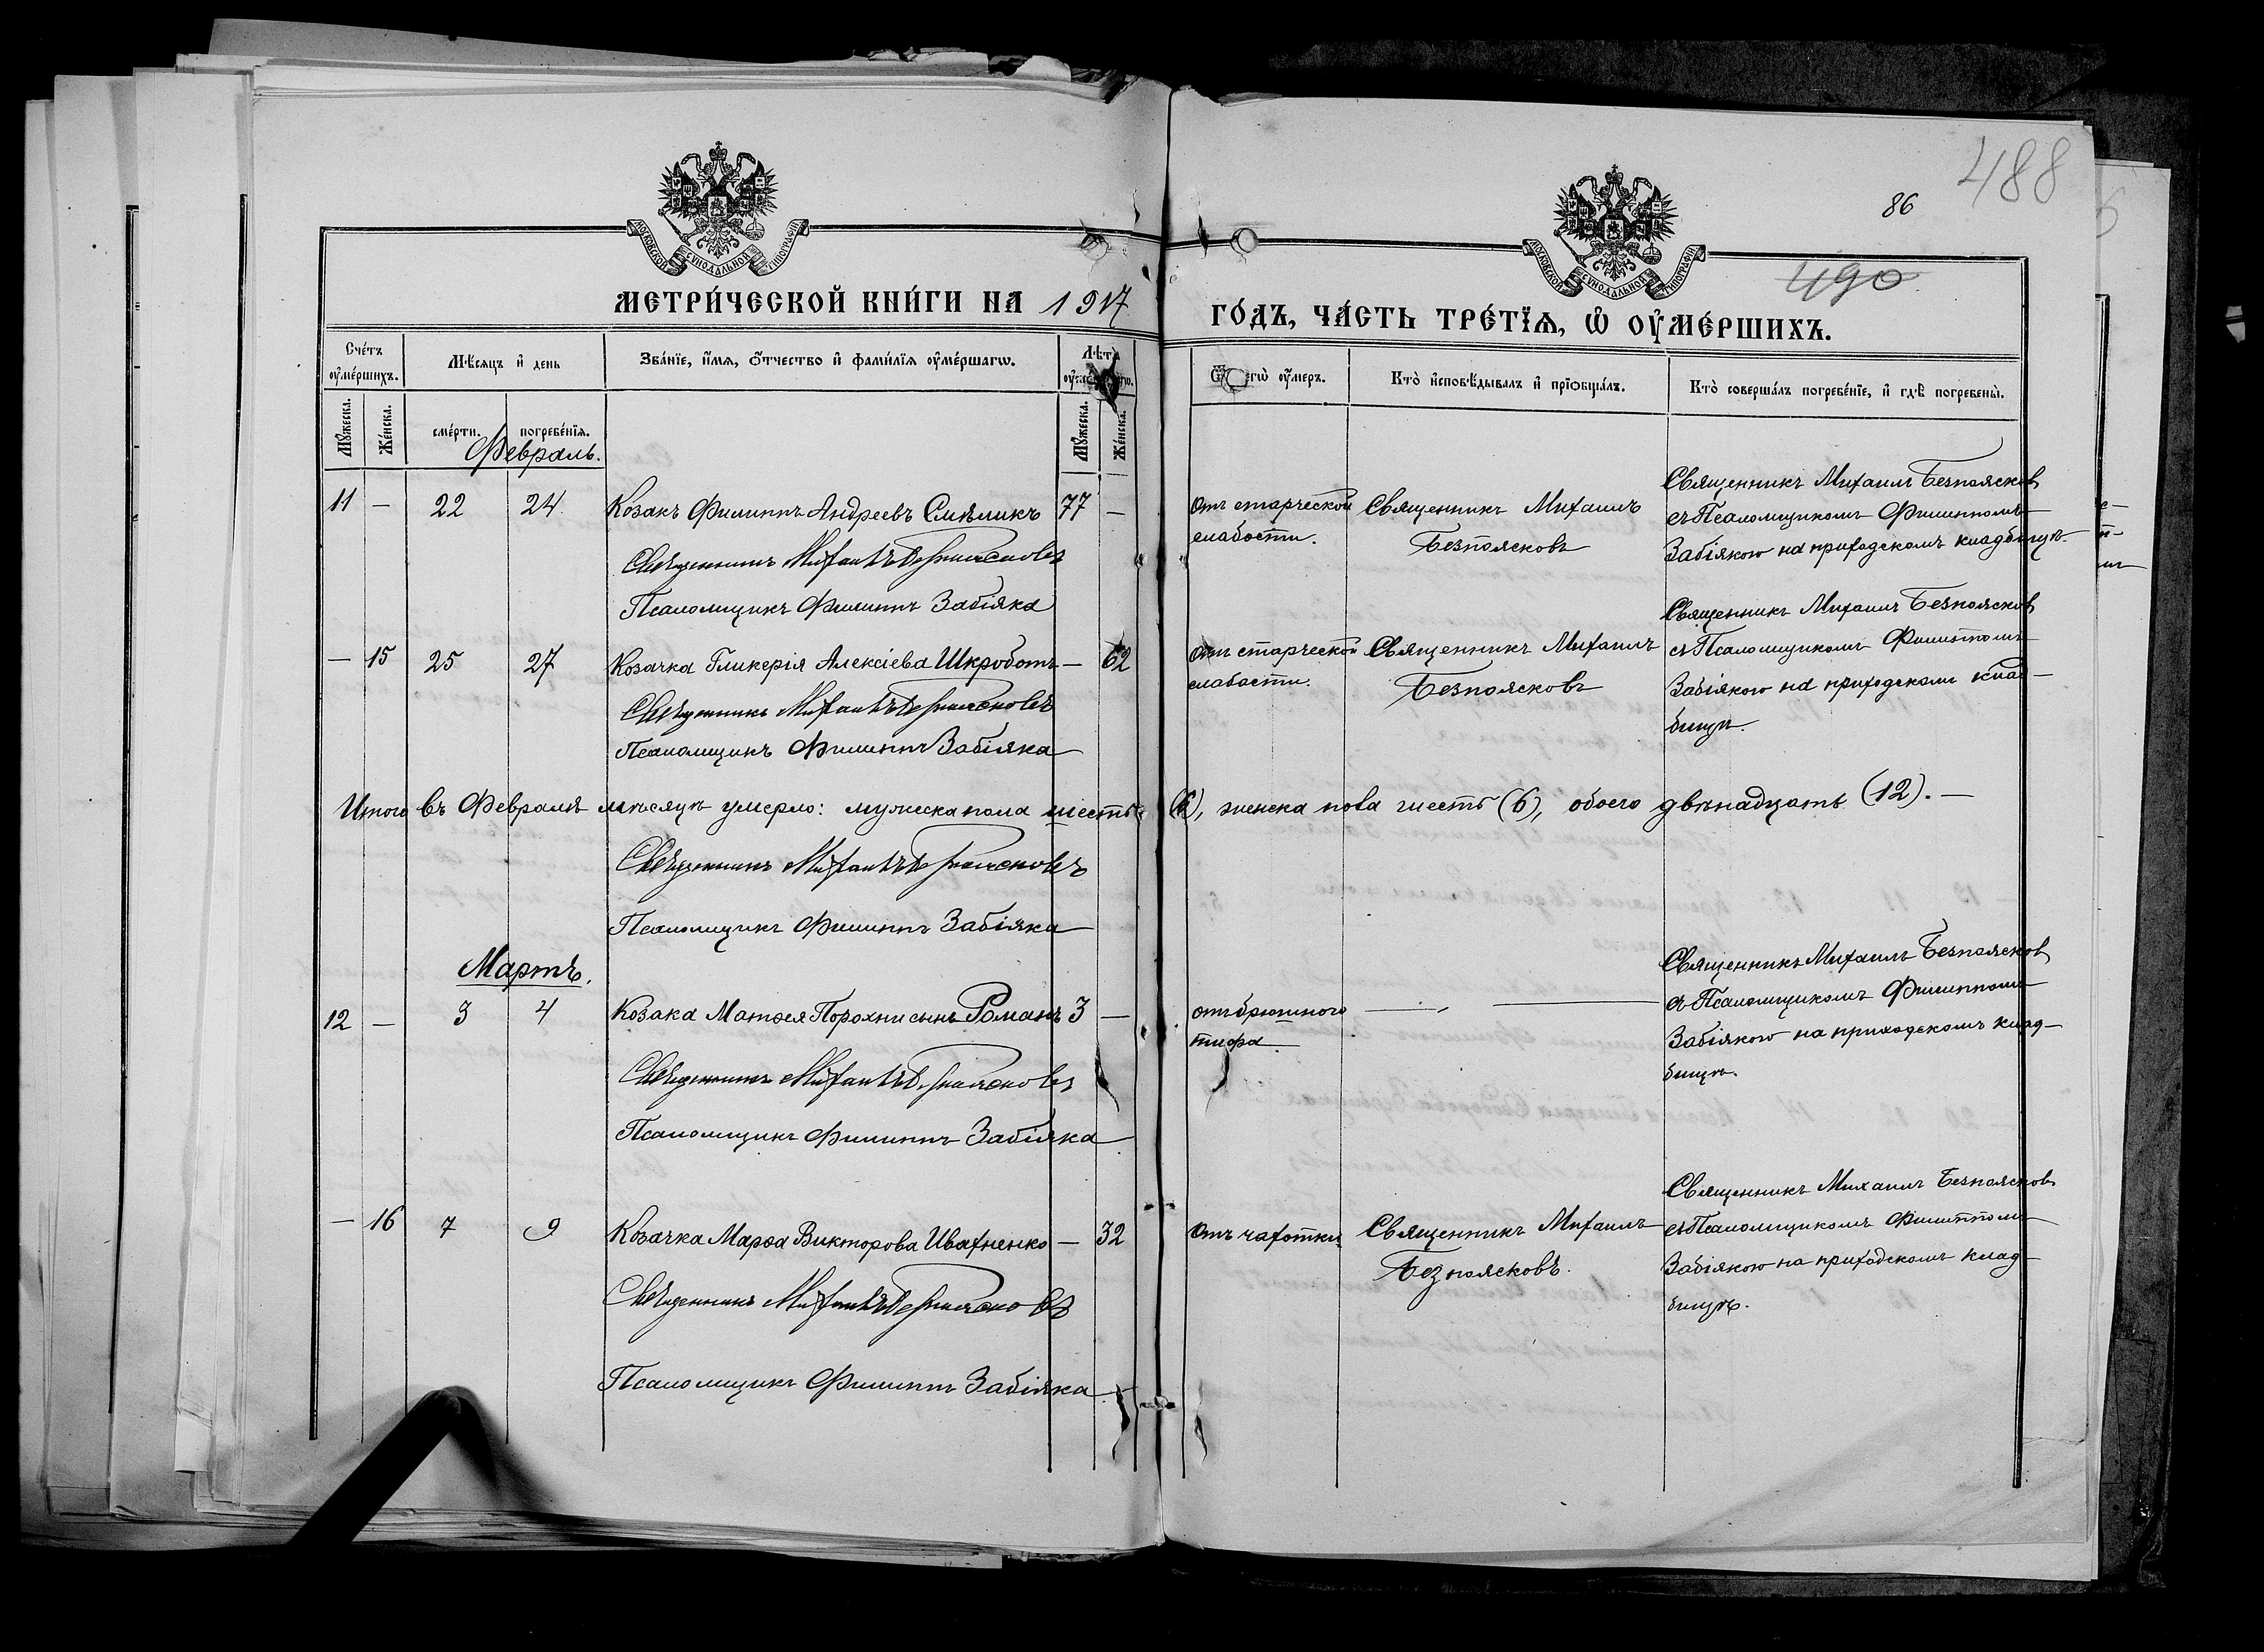 488
86
490
МОСКОВСКОЙ СУНОДАЛЬНОЙ ТИПОГРАФІИ
МОСКОВСКОЙ СУНОДАЛЬНОЙ ТИПОГРАФІИ
МЕТРИ́ЧЕСКОЙ КНИ́ГИ НА 1917
ГО́ДЪ, ЧА́СТЬ ТРЕ́ТЇѦ, Ѡ҆ ОУ҆МЕ́РШИХЪ.
Сче́тъ оу҆ме́ршихъ.
Мѣсяцъ и҆ день
Зва́нїе, и҆́мѧ, ѻ҆́тчество и҆ фами́лїѧ оу҆ме́ршагѡ.
Лѣтъ
егѡ̀ оу҆́меръ.
Кто̀ и҆сповѣ́дывалъ и҆ прїѡбща́лъ.
Кто̀ соверша́лъ погребе́нїе, и҆ гдѣ̀ погребены̀.
Мꙋ́жеска.
Же́нска.
сме́рти.
погребе́нїѧ.
Мꙋ́жеска.
Же́нска.
Февраль.
11 — 22 24 Козакъ Филиппъ Андреевъ Смѣликъ 77 —
Священникъ Михаилъ Безпоясковъ
Псаломщикъ Филиппъ Забіяка
Отъ старческой
слабости.
Священникъ Михаилъ
Безпоясковъ
Священникъ Михаилъ Безпоясков
съ Псаломщикомъ Филиппомъ
Забіякою на приходскомъ кладбищѣ.
— 15 25 27 Козачка Гликерія Алексіева Шкроботъ — 62
Священникъ Михаилъ Безпоясковъ
Псаломщикъ Филиппъ Забіяка
Отъ старческой
слабости.
Священникъ Михаилъ
Безпоясковъ
Священникъ Михаилъ Безпоясков
съ Псаломщикомъ Филиппомъ
Забіякою на приходскомъ клад-
бищѣ.
Итого въ Февралѣ мѣсяцѣ умерло: мужеска пола шесть (6), женска пола шесть (6), обоего двѣнадцать (12). —
Священникъ Михаилъ Безпоясковъ
Псаломщикъ Филиппъ Забіяка
Мартъ.
12 — 3 4 Козака Матѳея Порохни сынъ Романъ 3 —
Священникъ Михаилъ Безпоясковъ
Псаломщикъ Филиппъ Забіяка
отъ брюшного
тифа.
— „ —
Священникъ Михаилъ Безпоясков
съ Псаломщикомъ Филиппомъ
Забіякою на приходскомъ клад-
бищѣ.
— 16 7 9 Козачка Марѳа Викторова Ивахненко — 32
Священникъ Михаилъ Безпоясковъ
Псаломщикъ Филиппъ Забіяка
Отъ чахотки.
Священникъ Михаилъ
Безпоясковъ.
Священникъ Михаилъ Безпоясков
съ Псаломщикомъ Филиппомъ
Забіякою на приходскомъ клад-
бищѣ.